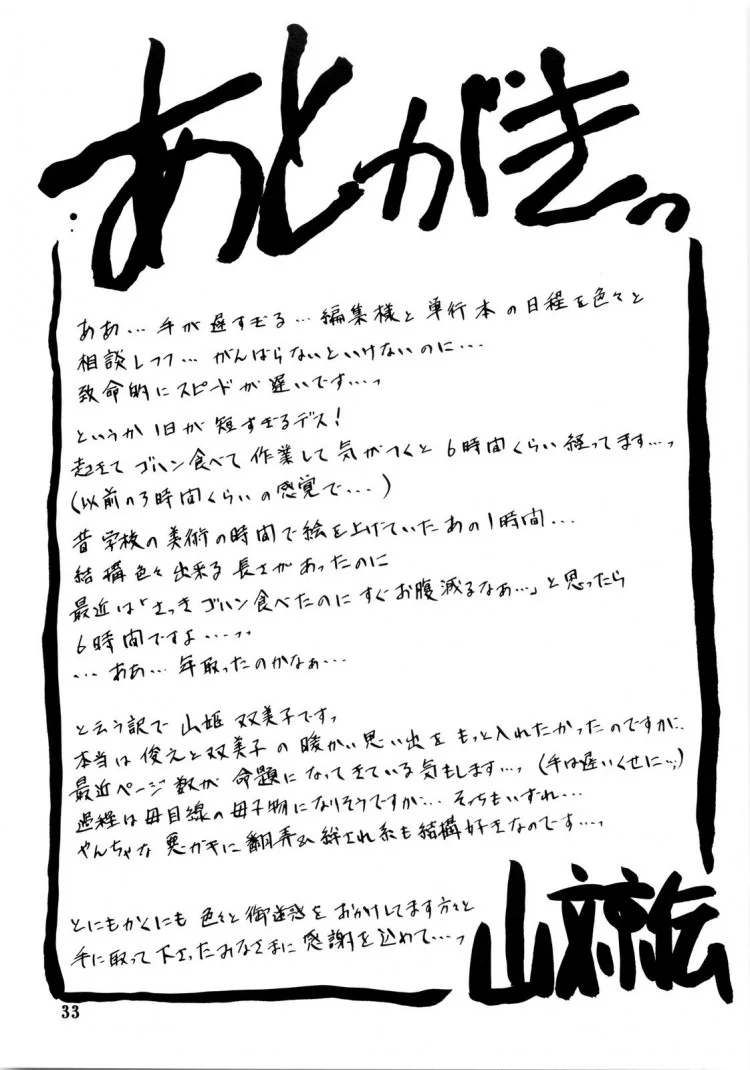 あとがきっ
ああ…手が遅すぎる…編集様と単行本の日程を色々と
相談しつつ…がんばらないといけないのに…
致命的にスピードが遅いです…っ
というか1日が短すぎるデス！
起きてゴハン食べて作業して気がつくと6時間くらい経ってます…っ
(以前の3時間くらいの感覚で…)
昔学校の美術の時間で絵を上げていたあの1時間…
結構色々出来る長さがあったのに
最近は「さっきゴハン食べたのにすぐお腹減るなぁ…」と思ったら
6時間ですよ…っっ
…ああ…年取ったのかなぁ…
と云う訳で山姫双美子ですっ
本当は俊之と双美子の暖かい思い出をもっと入れたかったのですが、
最近ページ数が命題になってきている気もします…っ(手は遅いくせに…;)
過程は母目線の母子物になりそうですが…そっちもいずれ…
やんちゃな悪ガキに翻弄&絆され系も結構好きなのです…っ
とにもかくにも色々と御迷惑をおかけしてます方々と
手に取って下さったみなさまに感謝を込めて…っ
山文京伝
33